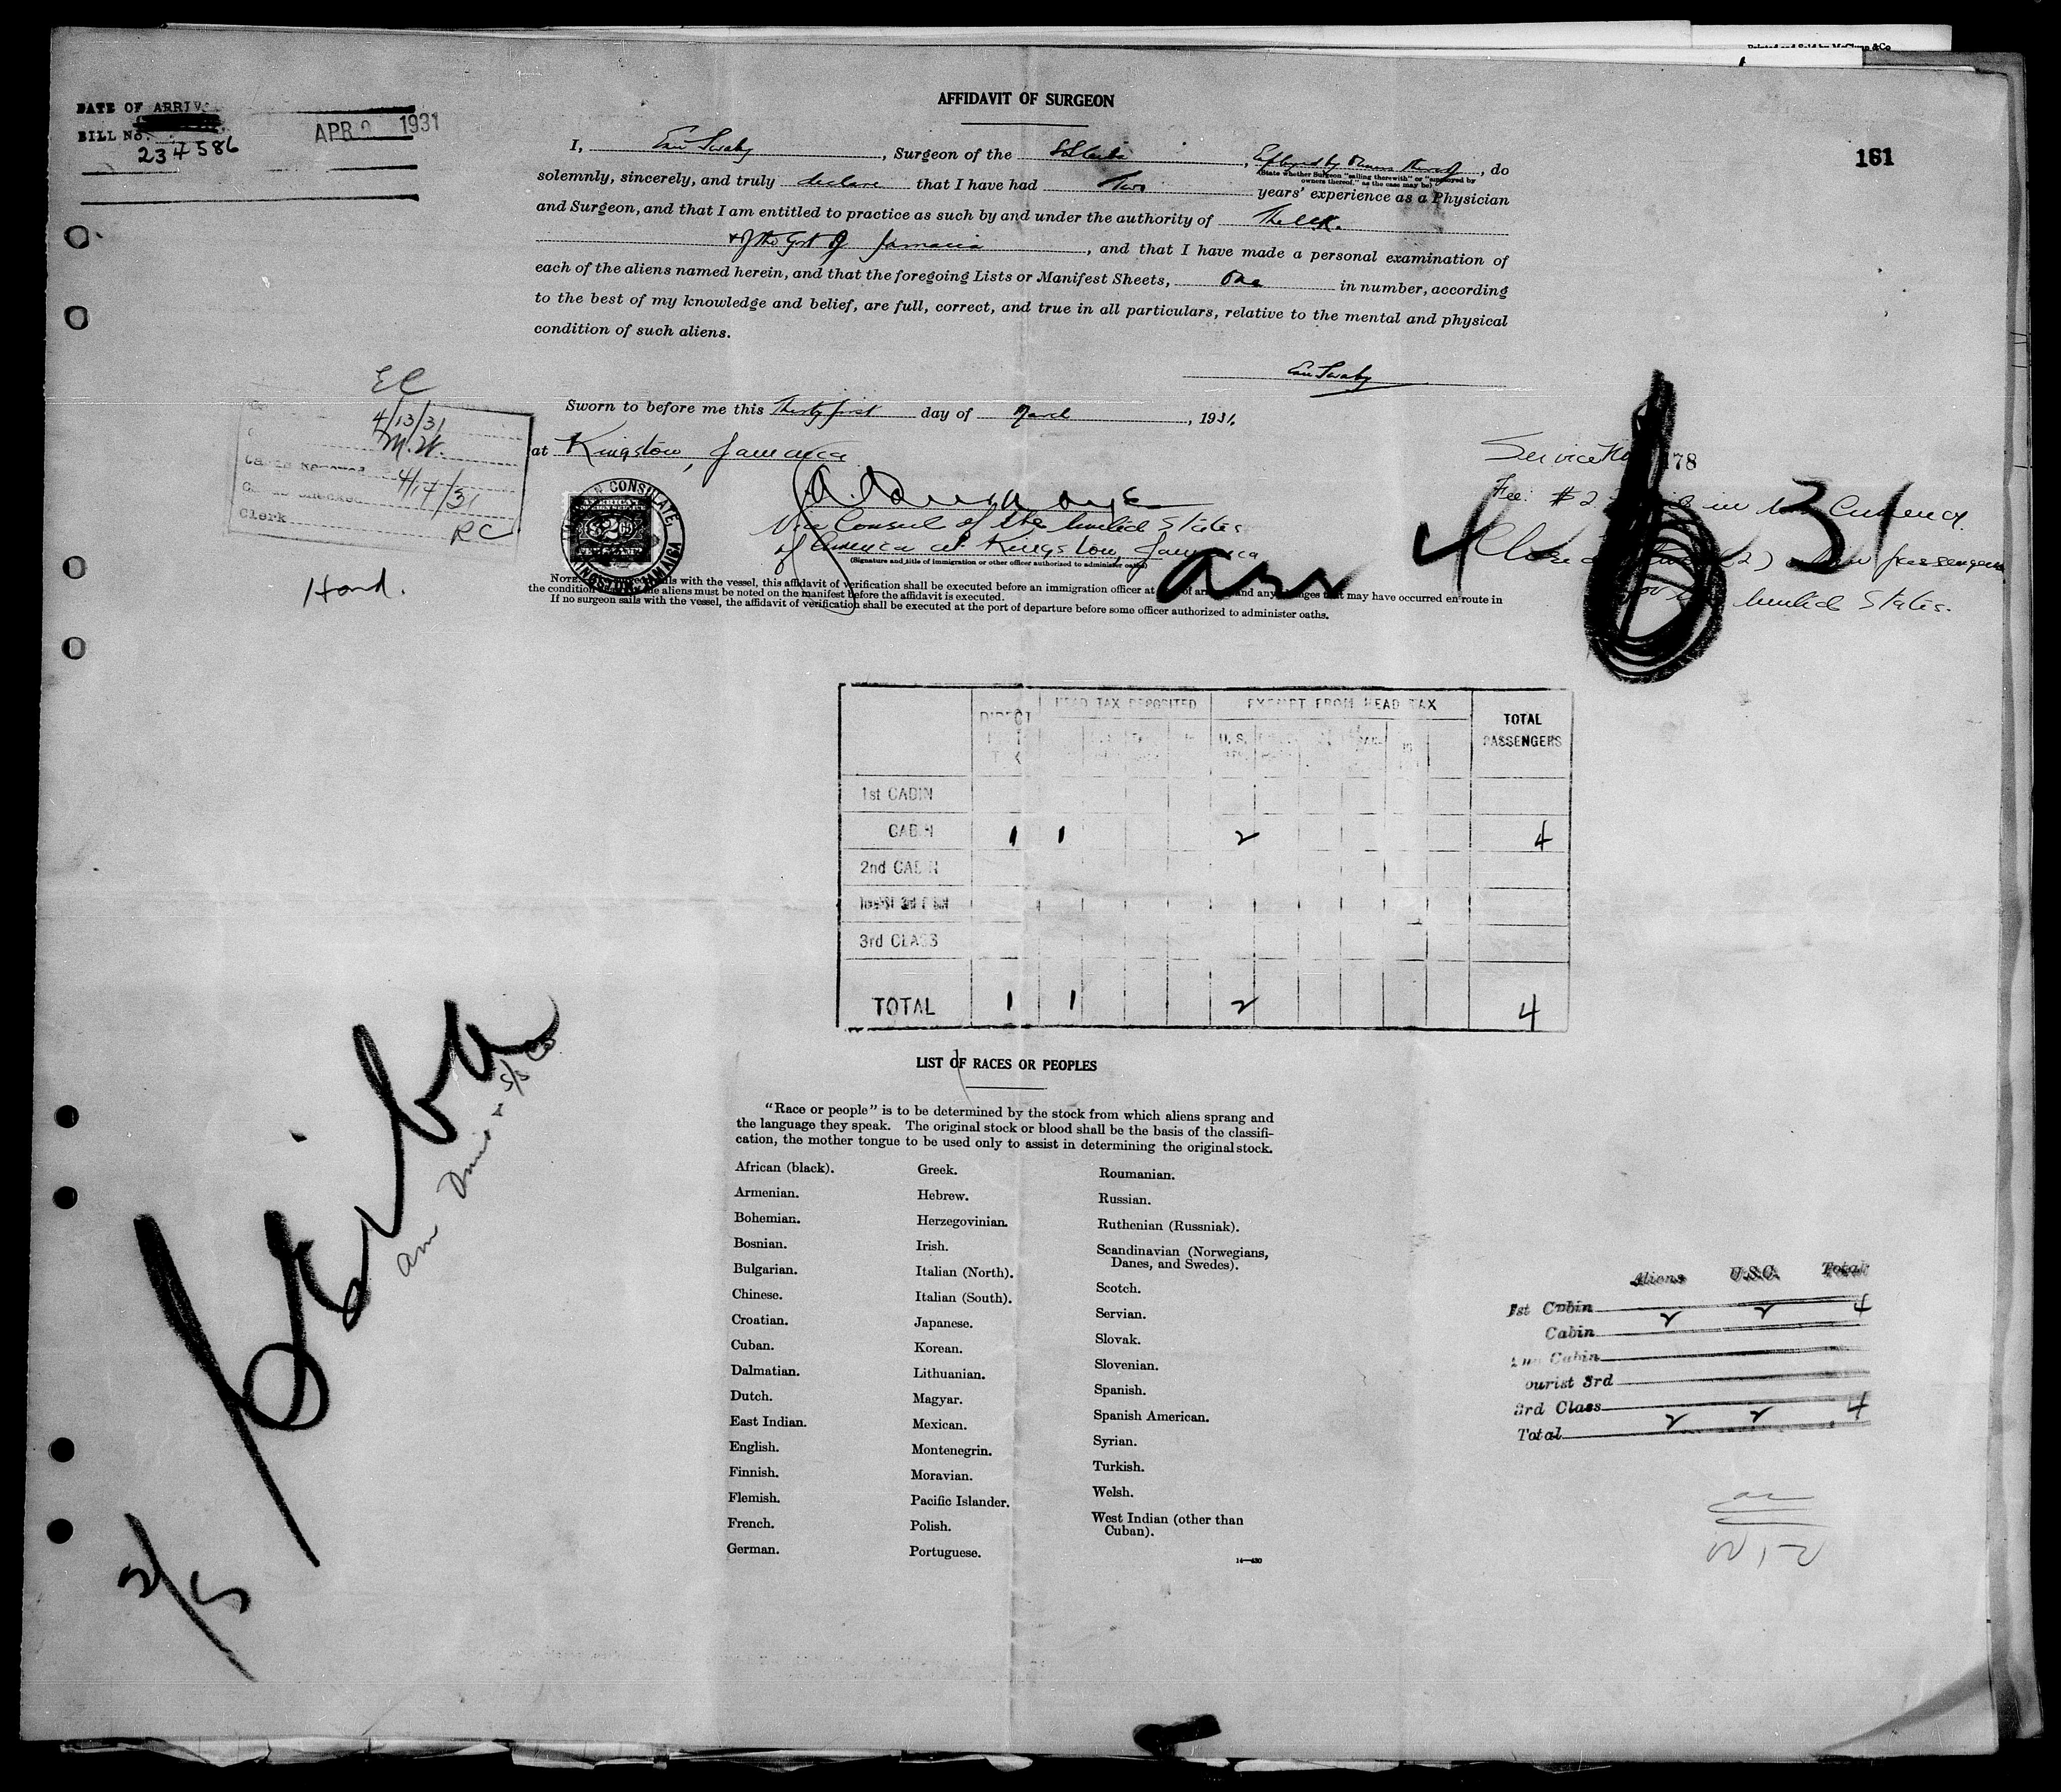 Printed and Sold by McClunn & Co
DATE OF ARRIV
BILL No.
234586
APR 2 1931
161
AFFIDAVIT OF SURGEON
I, Swaby, Surgeon of the SS Ceiba, Employed by Owners thereof, do
(State whether Surgeon "sailing therewith" or "employed by
owners thereof," as the case may be)
solemnly, sincerely, and truly declare that I have had Two years' experience as a Physician
and Surgeon, and that I am entitled to practice as such by and under the authority of The U.K.
& of the Govt of Jamaica, and that I have made a personal examination of
each of the aliens named herein, and that the foregoing Lists or Manifest Sheets, One in number, according
to the best of my knowledge and belief, are full, correct, and true in all particulars, relative to the mental and physical
condition of such aliens.
Swaby
Sworn to before me this Thirty first day of March, 1931,
at Kingston, Jamaica
Vice Consul of the United States
of America at Kingston, Jamaica
(Signature and title of immigration or other officer authorized to administer oaths)
EC
4/13/31
M.W.
4/17/31
Clerk
RC
Hand.
CONSULATE
AMERICAN
FOREIGN SERVICE
$2
FEE STAMP
KINGSTON, JAMAICA
Service No. 178
Fee: $2 in Currency.
(2) passengers
United States.
arr 4 31
with the vessel, this affidavit of verification shall be executed before an immigration officer at of and any changes that may have occurred en route in
the condition aliens must be noted on the manifest before the affidavit is executed.
If no surgeon sails with the vessel, the affidavit of verification shall be executed at the port of departure before some officer authorized to administer oaths.
DIRECT HEAD TAX DEPOSITED EXEMPT FROM HEAD TAX TOTAL PASSENGERS
U.S.
1st CABIN
CABIN 1 1 2 4
2nd CABIN
3rd CLASS
TOTAL 1 1 2 4
LIST OF RACES OR PEOPLES
"Race or people" is to be determined by the stock from which aliens sprang and
the language they speak. The original stock or blood shall be the basis of the classifi-
cation, the mother tongue to be used only to assist in determining the original stock.
African (black).
Armenian.
Bohemian.
Bosnian.
Bulgarian.
Chinese.
Croatian.
Cuban.
Dalmatian.
Dutch.
East Indian.
English.
Finnish.
Flemish.
French.
German.
Greek.
Hebrew.
Herzegovinian.
Irish.
Italian (North).
Italian (South).
Japanese.
Korean.
Lithuanian.
Magyar.
Mexican.
Montenegrin.
Moravian.
Pacific Islander.
Polish.
Portuguese.
Roumanian.
Russian.
Ruthenian (Russniak).
Scandinavian (Norwegians,
Danes, and Swedes).
Scotch.
Servian.
Slovak.
Slovenian.
Spanish.
Spanish American.
Syrian.
Turkish.
Welsh.
West Indian (other than
Cuban).
14—430
Ceiba
S/S
Aliens U.S.C. Total
1st Cabin 2 2 4
Cabin
2nd Cabin
ourist 3rd
3rd Class
Total 2 2 4